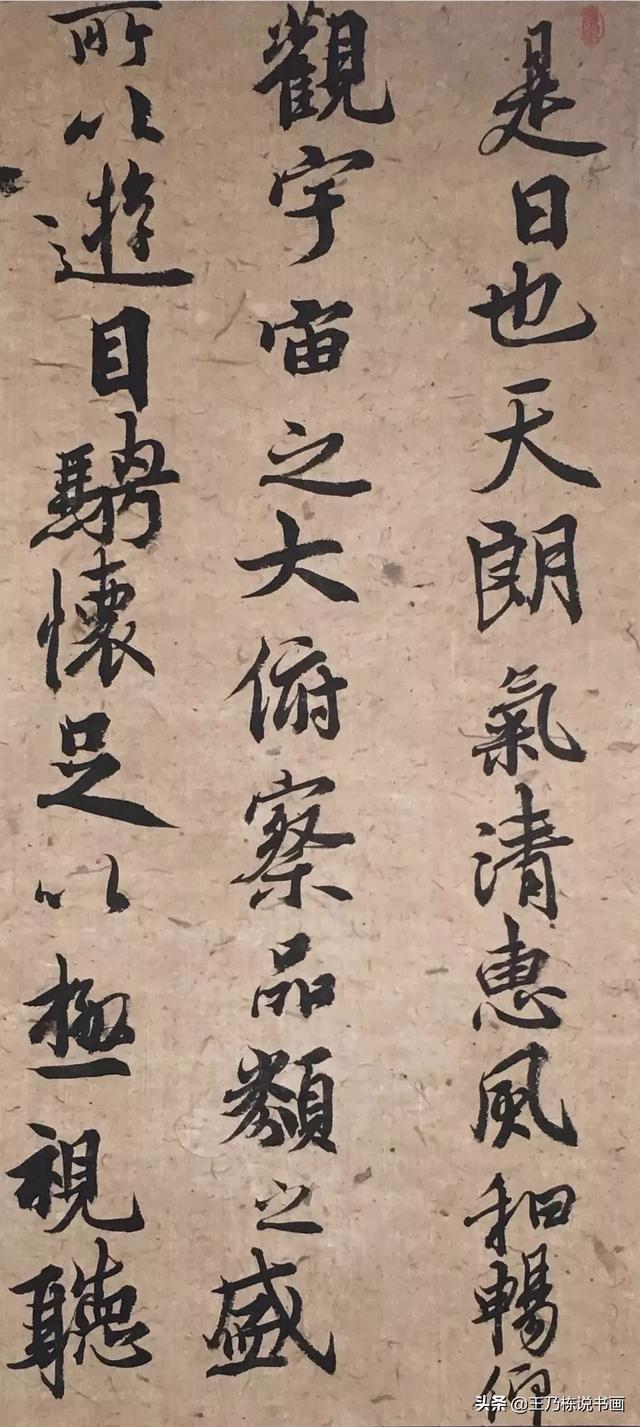 是日也天朗氣清惠風和暢仰
觀宇宙之大俯察品類之盛
所以遊目騁懷足以極視聽
头条 @王乃栋说书画